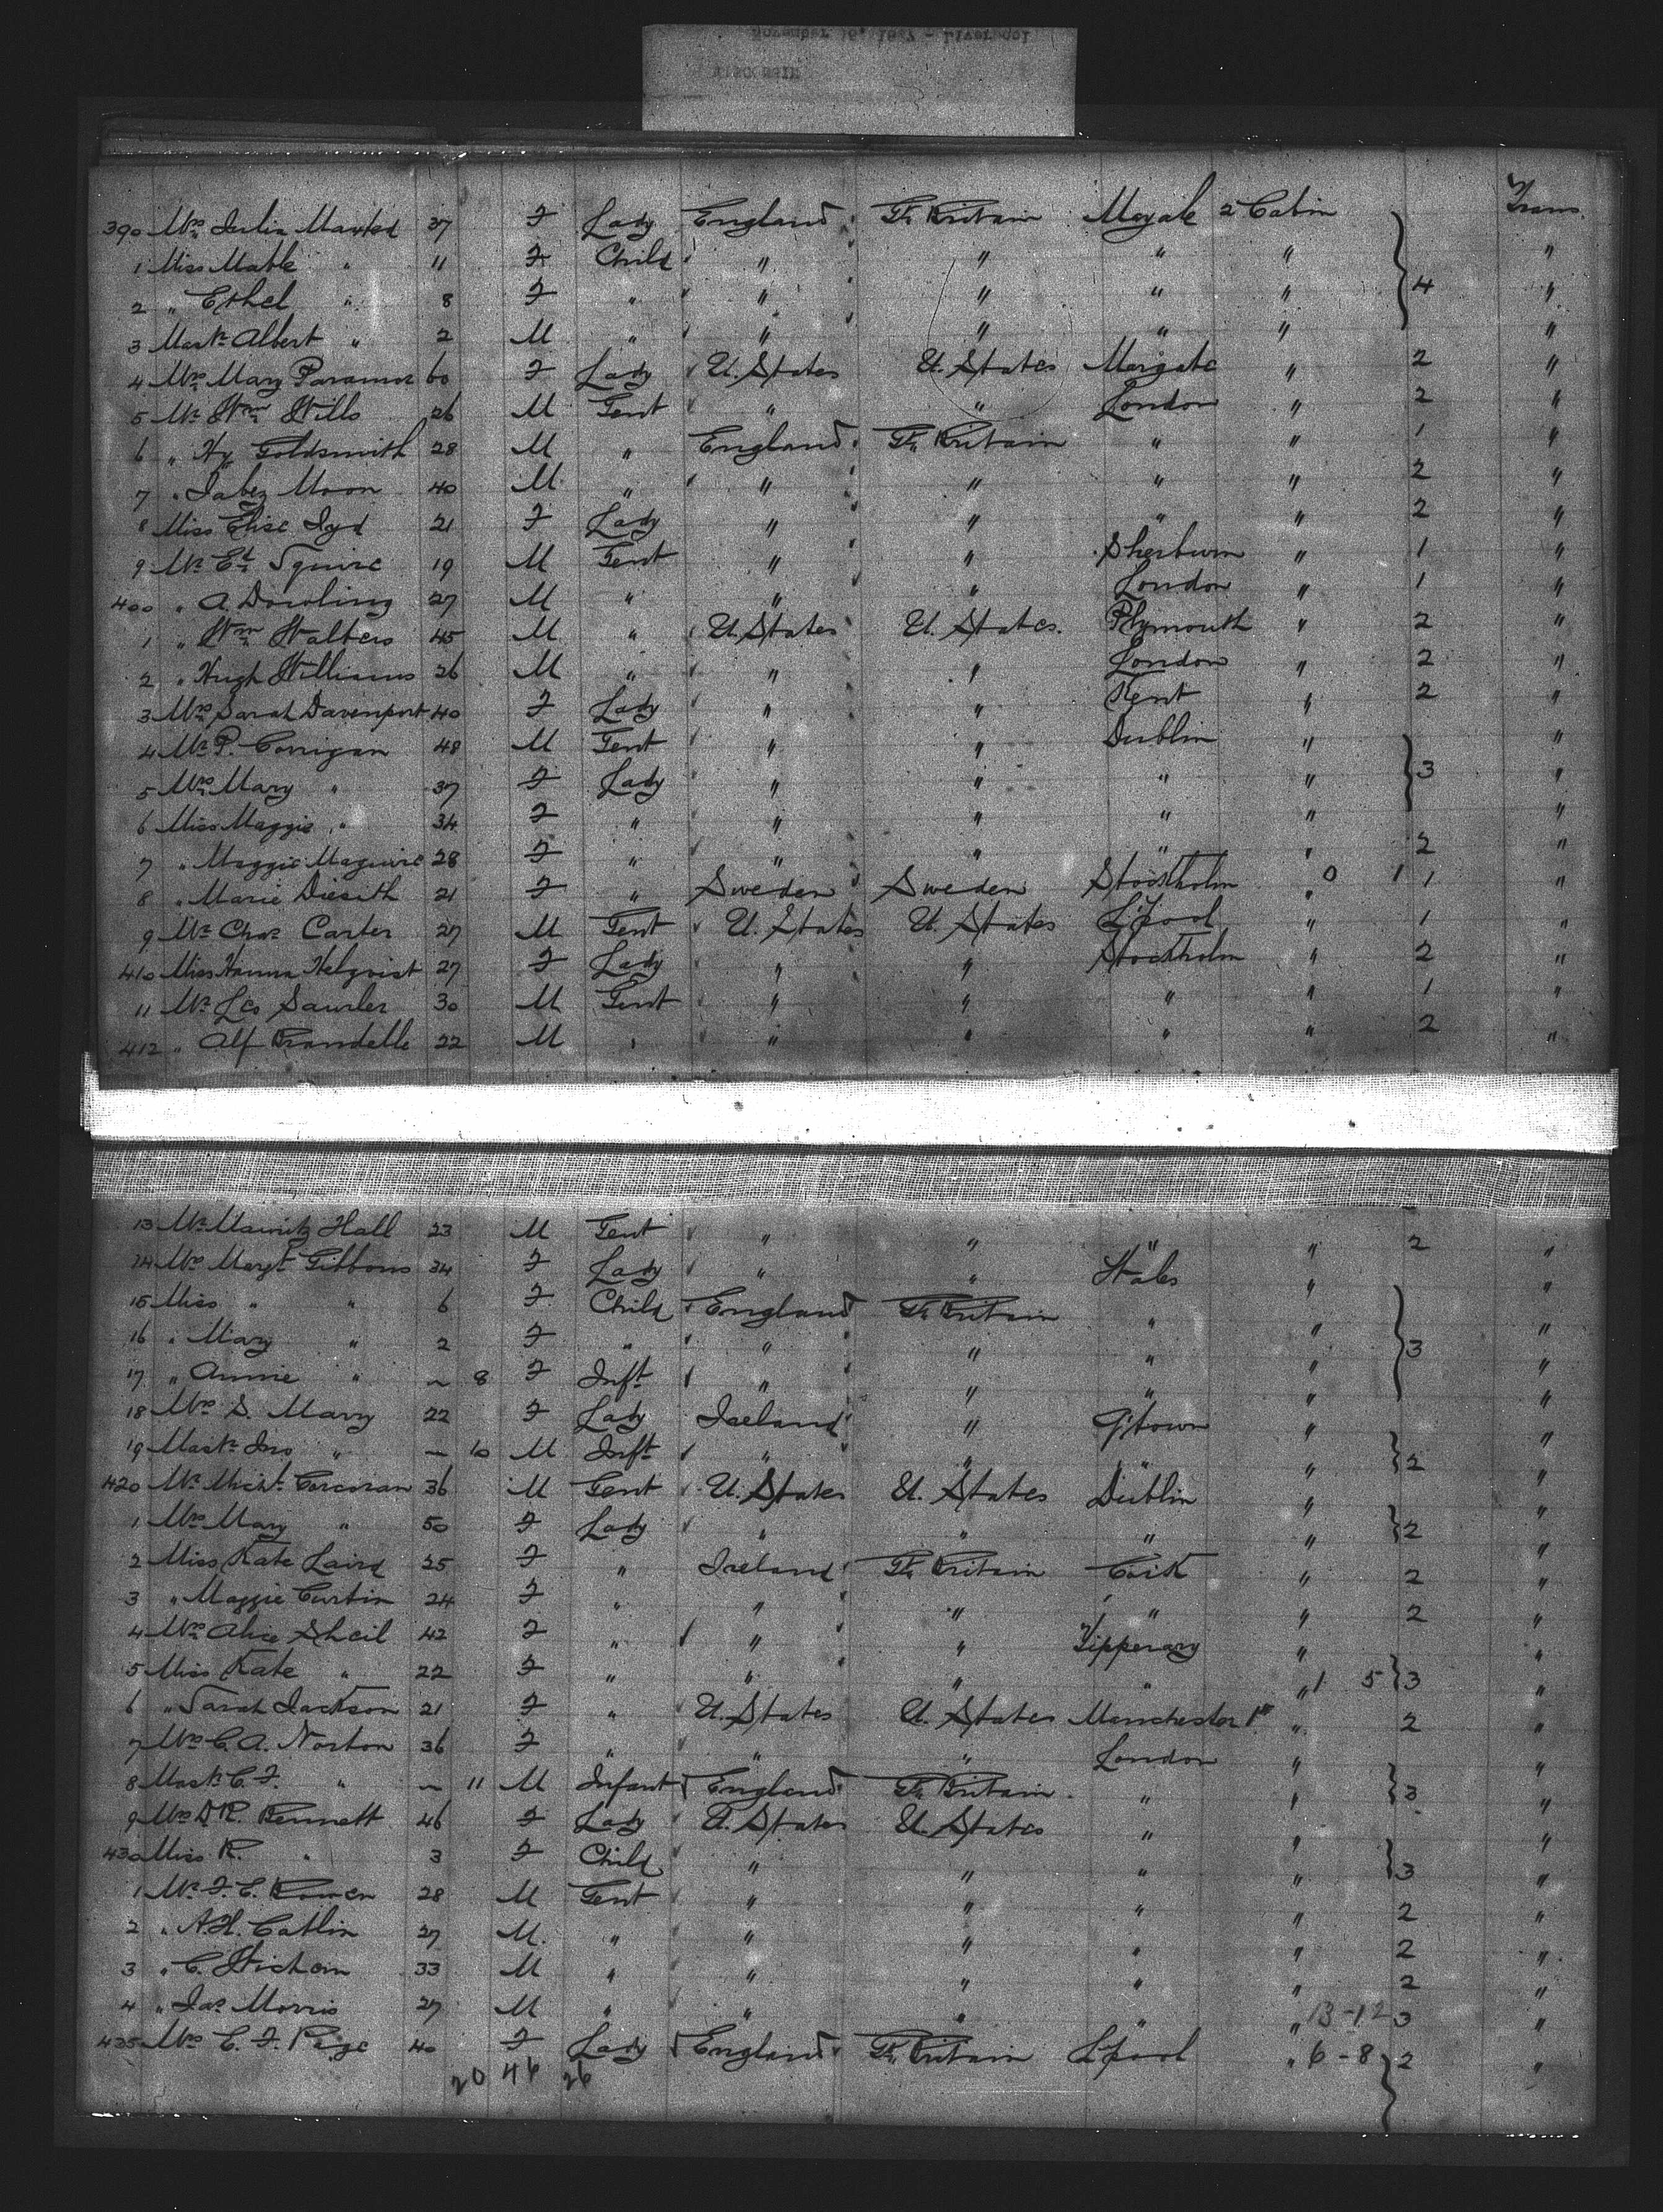 November 16, 1887 - Liverpool
WISCONSIN
Trans.
390 Mrs Julia Maxted 37 F Lady England Gt Britain Margate 2 Cabin
1 Miss Mable " 11 F Child " " " " "
2 " Ethel " 8 F " " " " " 4 "
3 Mastr Albert " 2 M " " " " " "
4 Mrs Mary Paramor 60 F Lady U. States U. States Margate " 2 "
5 Mr Wm Wills 26 M Gent " " London " 2 "
6 " Hy Goldsmith 28 M " England Gt Britain " " 1 "
7 " Jabez Moon 40 M " " " " " 2 "
8 Miss Elise 21 F Lady " " " " 2 "
9 Mr Ed Squire 19 M Gent " " Sherburn " 1 "
400 " A. Dowling 27 M " " " London " 1 "
1 " Wm Walters 45 M " U. States U. States. Plymouth " 2 "
2 " Hugh Williams 26 M " " " London " 2 "
3 Mrs Sarah Davenport 40 F Lady " " Kent " 2 "
4 Mr P. Corrigan 48 M Gent " " Dublin " "
5 Mrs Mary " 37 F Lady " " " " 3 "
6 Miss Maggie " 34 F " " " " " "
7 " Maggie Maguire 28 F " " " " " 2 "
8 " Marie 21 F " Sweden Sweden Stockholm " 0 1 1 "
9 Mr Chas Carter 27 M Gent U. States U. States L'pool " 1 "
410 Miss Hanna Helqvist 27 F Lady " " Stockholm " 2 "
11 Mr Leo Sawler 30 M Gent " " " " 1 "
412 " Alf Brandelle 22 M " " " " " 2 "
13 Mr Mauritz Hall 23 M Gent " " " " 2 "
14 Mrs Margt Gibbons 34 F Lady " " Wales " "
15 Miss " " 6 F Child England Gt Britain " " "
16 " Mary " 2 F " " " " " 3 "
17 " Annie " ~ 8 F Inft " " " " "
18 Mrs S. Mary 22 F Lady Ireland " Q'town " "
19 Mastr Jno " — 10 M Inft " " " " 2 "
420 Mr Michl Corcoran 36 M Gent U. States U. States Dublin " "
1 Mrs Mary " 50 F Lady " " " " 2 "
2 Miss Kate Laird 25 F " Ireland Gt Britain Cork " 2 "
3 " Maggie Curtin 24 F " " " " " 2 "
4 Mrs Alice Sheil 42 F " " " Tipperary " "
5 Miss Kate " 22 F " " " " " 1 5 3 "
6 " Sarah Jackson 21 F " U. States U. States Manchester " 2 "
7 Mrs C. A. Norton 36 F " " " London " "
8 Mastr C. F. " ~ 11 M Infant England Gt Britain. " " 3 "
9 Mrs D R. Bennett 46 F Lady U. States U. States " " "
430 Miss R. " 3 F Child " " " " 3 "
1 Mr F. E. Bowen 28 M Gent " " " " 2 "
2 " A. H. Catlin 27 M. " " " " " 2 "
3 " C. Wichom 33 M " " " " " 2 "
4 " Jas Morris 27 M " " " " " 13-12 3 "
435 Mrs C. F. Page 40 F Lady England Gt Britain L'pool " 6-8 2 "
20 46 26